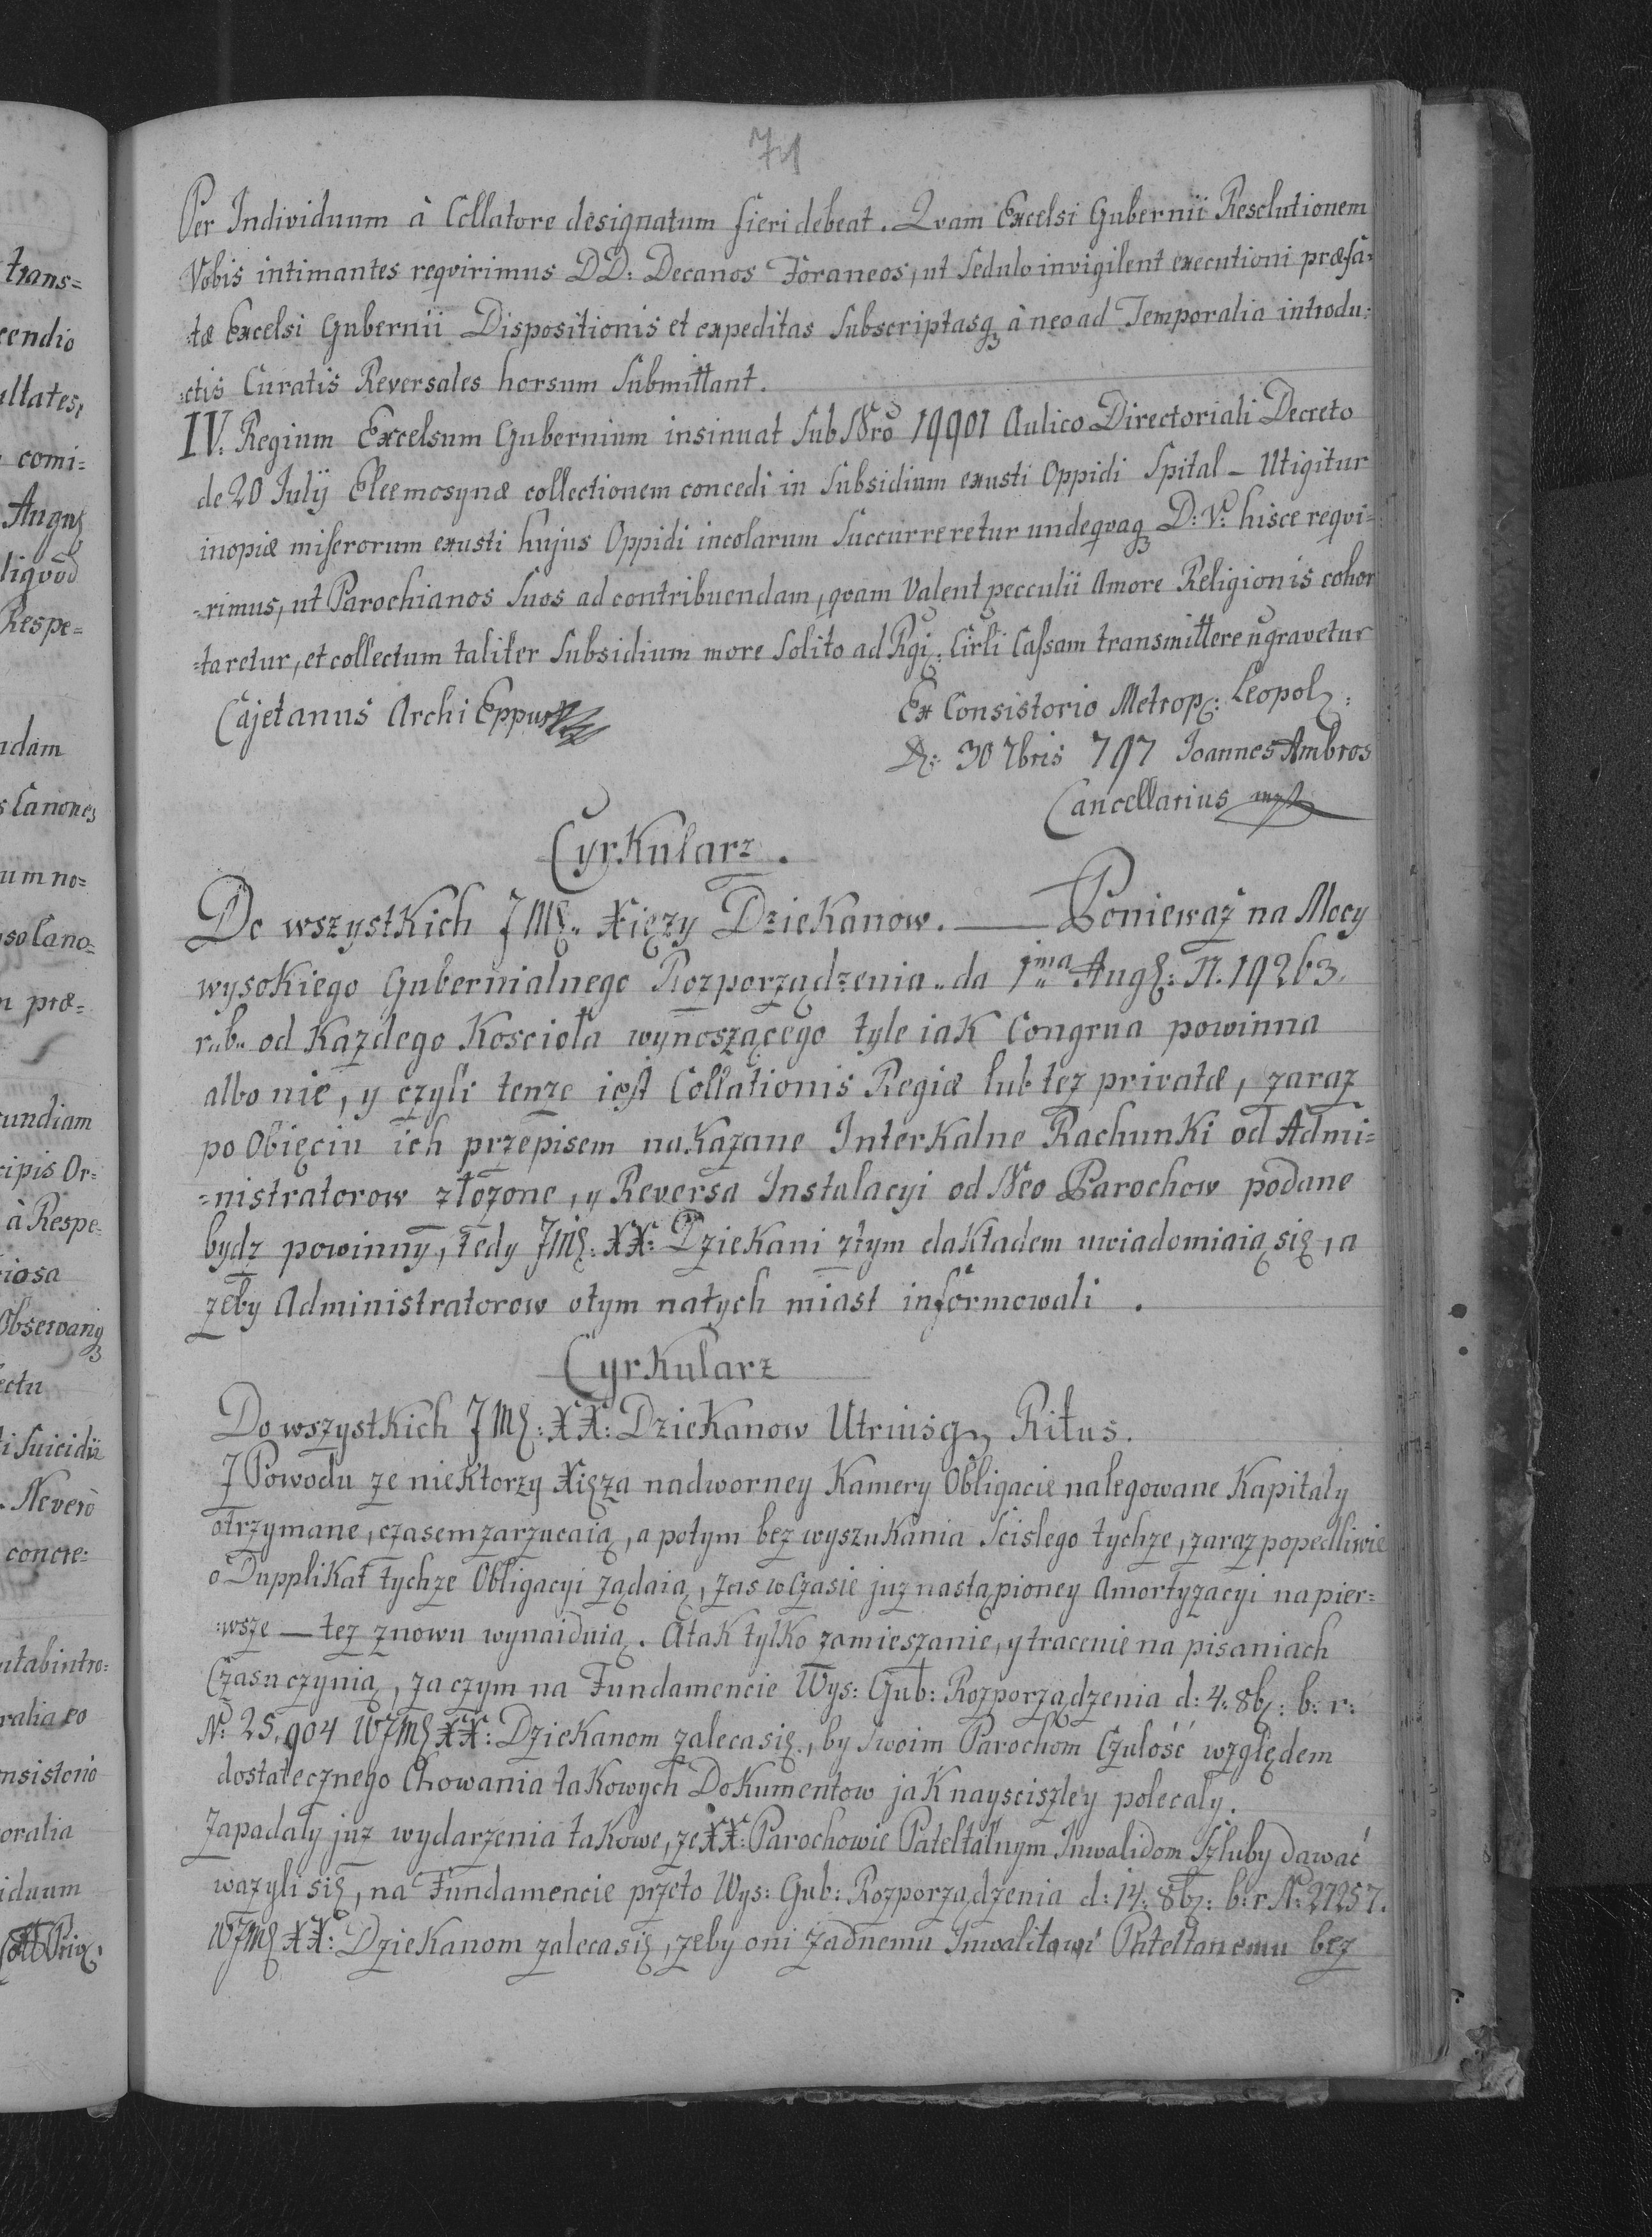 74
Per Individuum à Collatore designatum fieri debeat. Qvam Excelsi Gubernii Resolutionem
Vobis intimantes reqvirimus DD: Decanos Foraneos, ut sedulo invigilent executioni præfa-
-tæ Excelsi Gubernii Dispositionis et expeditas subscriptasq à neo ad Temporalia introdu-
-ctis Curatis Reversales horsum submittant.
IV: Regium Excelsum Gubernium insinuat sub Nro 19901 Aulico Directoriali Decreto
de 20 Julij Eleemosynæ collectionem concedi in subsidium exusti Oppidi Spital – Utigitur
inopiæ miserorum exusti hujus Oppidi incolarum succurreretur undeqvaq D: V: hisce reqvi-
-rimus, ut Parochianos suos ad contribuendam, qvam valent pecculii Amore Religionis cohor
-taretur, et collectum taliter subsidium more solito ad Rgi: Cirli Cassam transmittere ngravetur
Cajetanus Archi Eppus
Ex Consistorio Metrop: Leopol:
D: 30 7bris 797 Joannes Ambros
Cancellarius mp
Cyrkularz.
Do wszystkich JMę: Xięzy Dziekanow. — Poniewaz na Mocy
wysokiego Gubernialnego Rozporządzenia „ da 1ma Aug: N. 19263.
r„b„ od Kazdego Kosciola wynoszącego tyle iak Congrua powinna
albo nie, y czyli tenze iest Collationis Regiæ lub tez privatæ, zaraz
po Obięciu ich przepisem nakazane Interkalne Rachunki od Admi-
-nistratorow złozone, y Reversa Instalacyi od Neo Parochow podane
bydz powinny, tedy JMę: XX: Dziekani ztym dakładem uwiadomiaią się, a
zeby Administratorow otym natych miast informowali .
Cyrkularz
Do wszystkich JMę: XX: Dziekanow Utriusq Ritus.
Z Powodu ze niektorzy Xięza nadworney Kamery Obligacie nalegowane Kapitaly
otrzymane, czasem zarzucaią, a potym bez wyszukania scislego tychze, zaraz popedliwie
o Dupplikat tychze Obligacyi ządaią, zas w Czasie juz nastąpioney Amortyzacyi na pier-
-wsze — tez znowu wynaiduią. Atak tylko zamieszanie, y tracenie na pisaniach
Czasu czynią, zaczym na Fundamencie Wys: Gub: Rozporządzenia d: 4: 8b: b: r:
N: 25,904 WJMę XX: Dziekanom zaleca się, by swoim Parochom Czulość względem
dostatecznego Chowania takowych Dokumentow jak naysciszley polecaly.
Zapadaly juz wydarzenia takowe, ze XX: Parochowie Pateltalnym Inwalidom Szluby dawać
wazyli się, na Fundamencie przeto Wys: Gub: Rozporządzenia d: 14: 8b: b: r N: 27257.
WJMę XX: Dziekanom zaleca się, zeby oni zadnemu Inwalitowi Pateltanemu bez